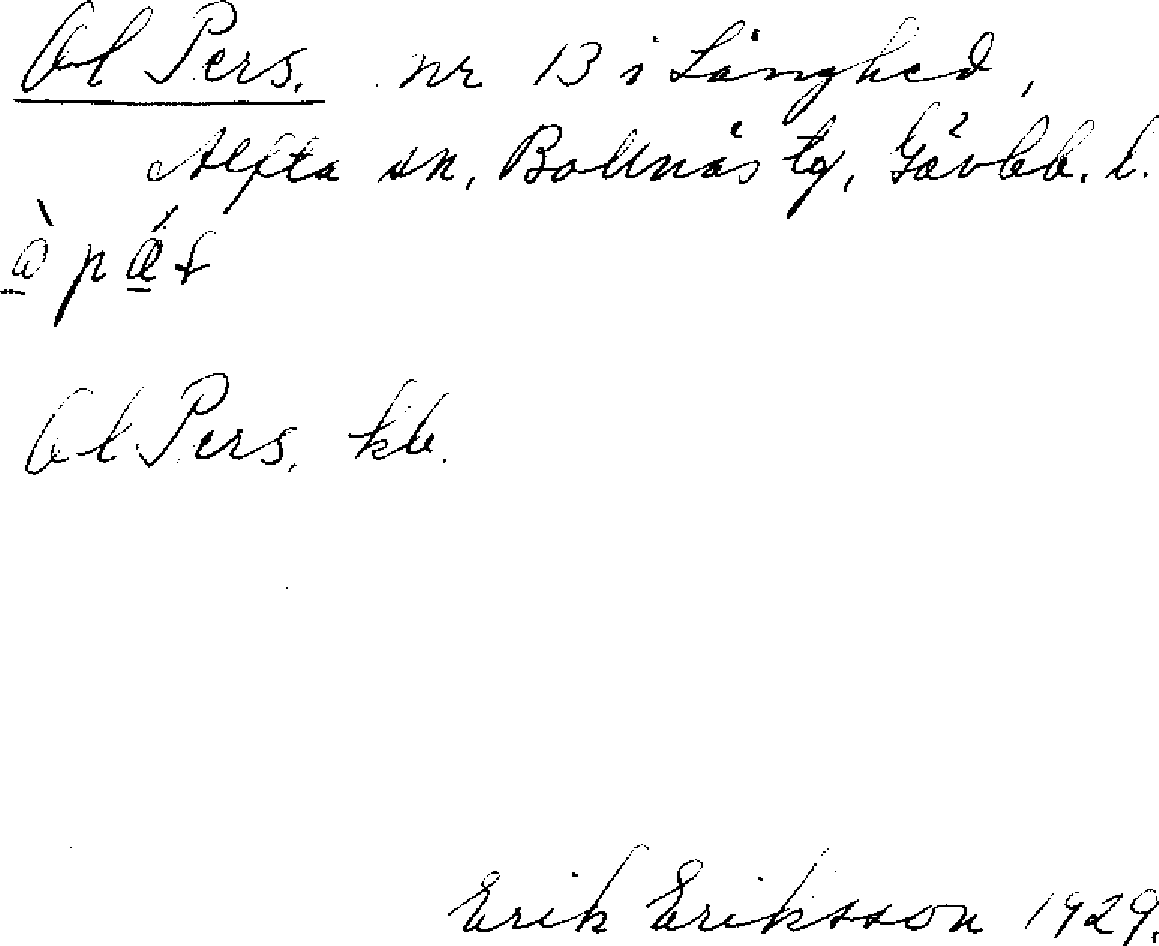 Ol Pers. nr 13 i Långhed,
Alfta sn, Bollnäs tg, Gävleb. l.
Ol Pers. kb.
Erik Eriksson 1929.